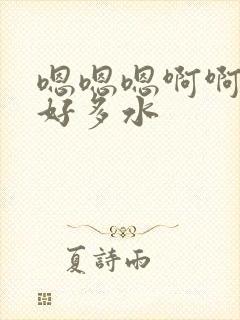 嗯嗯嗯啊啊
好多水
夏詩雨